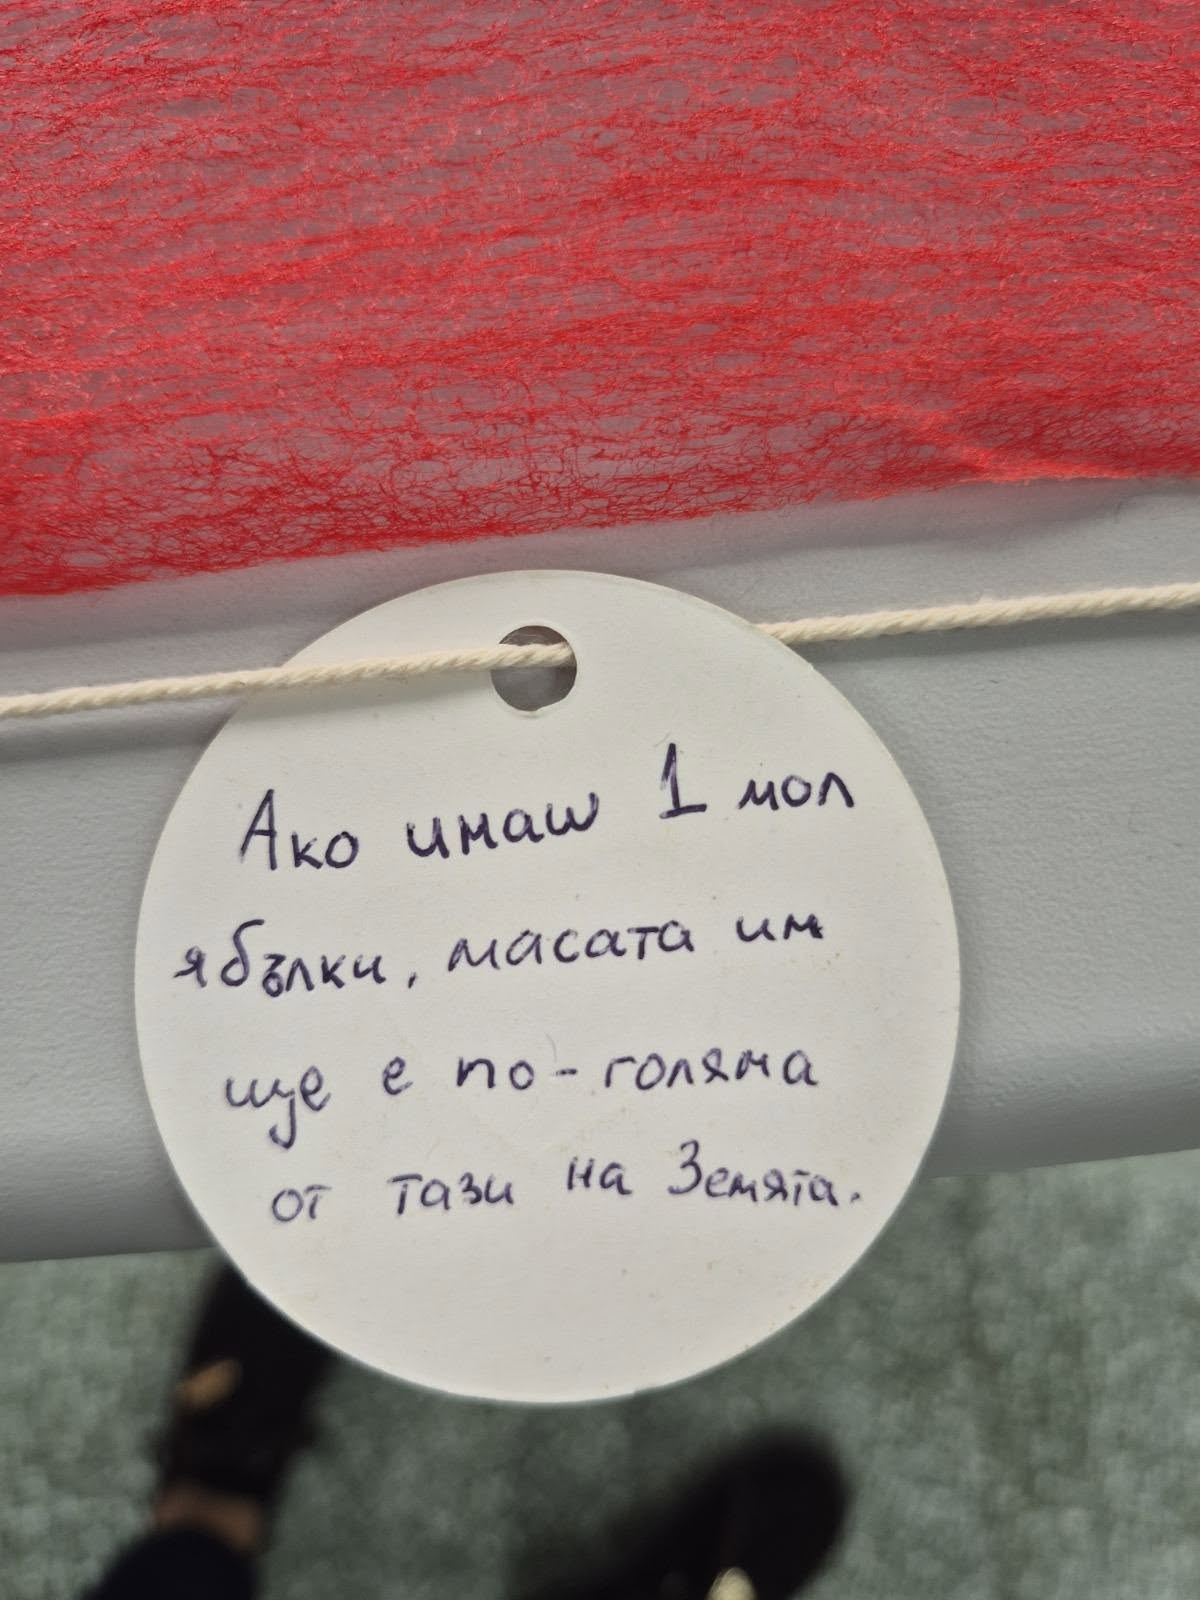 Ако имаш 1 мол
ябълки, масата им
ще е по-голяма
от тази на Земята.